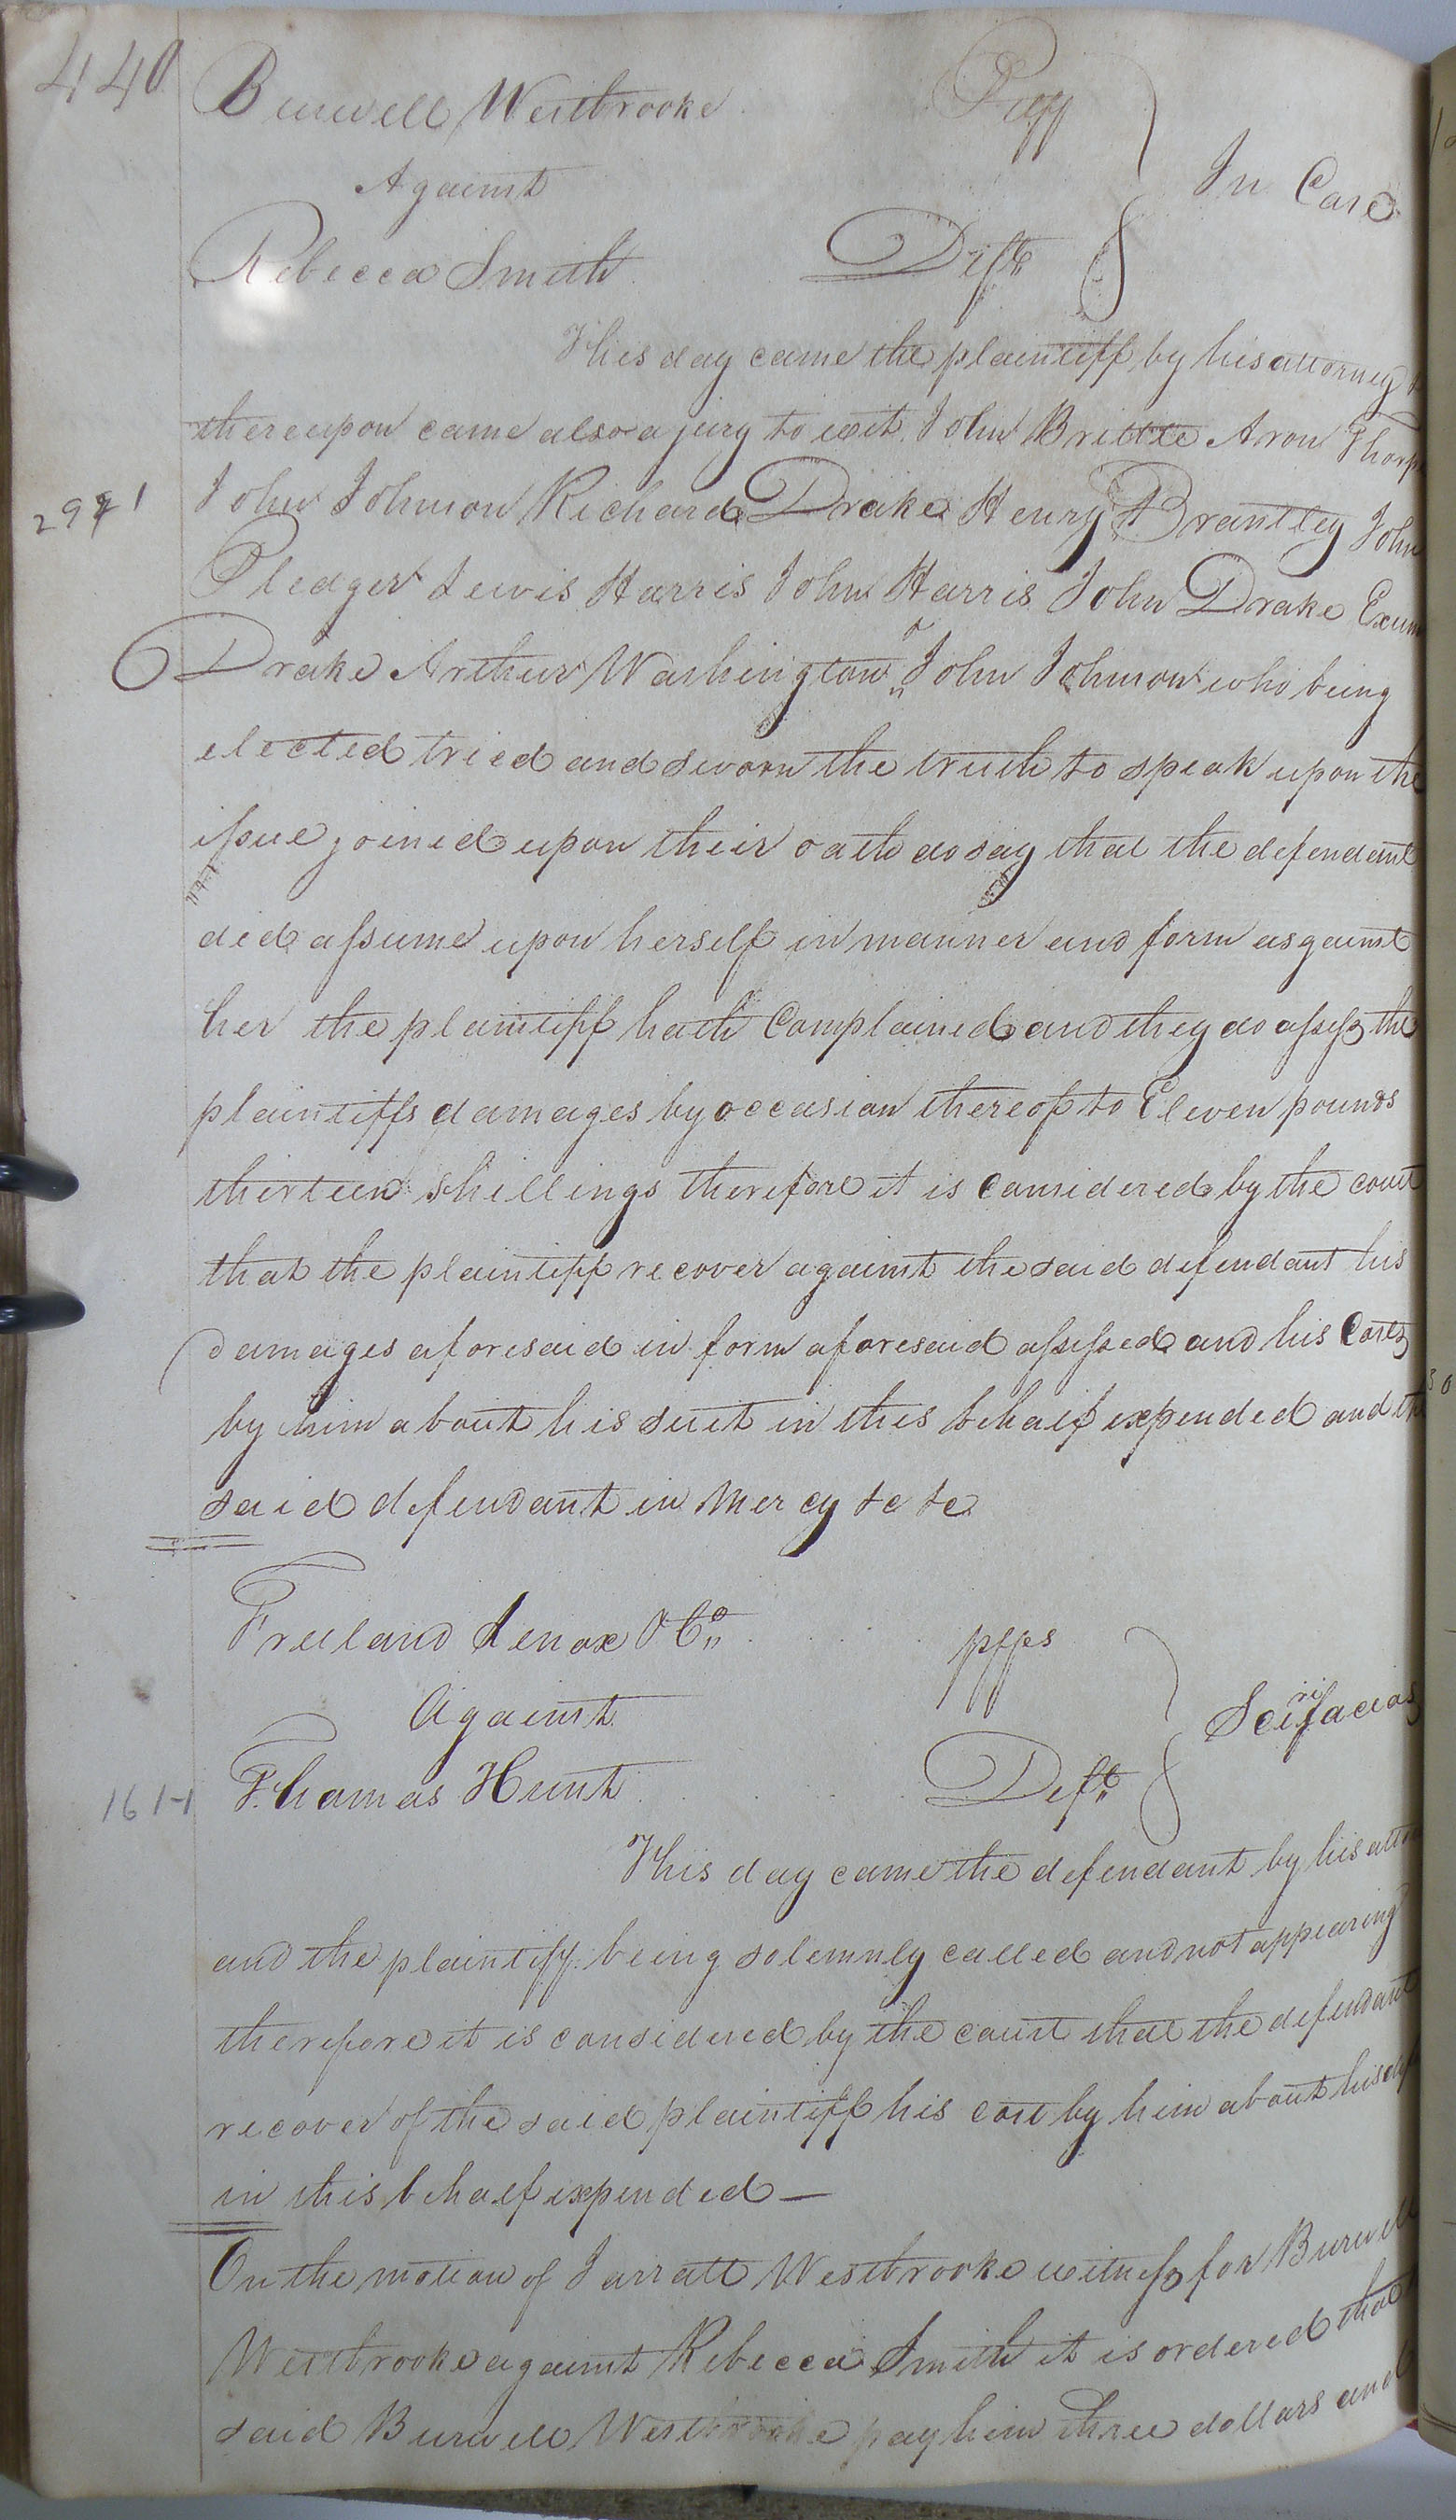 440
Burwell Westbrooke Plff
Against In Case
Rebecca Smith Deft
This day came the plaintiff by his attorney
thereupon came also a jury to wit John Brittle Aron Thorp
2971 John Johnson Richard Drake Henry Brantley John
Pledger Lewis Harris John Harris John Drake Exum
Drake Arthur Washington & John Johnson who being
elected tried and sworn the truth to speak upon the
issue joined upon their oath do say that the defendant
did assume upon herself in manner and form as against
her the plaintiff hath Complained and they do assess the
plaintiffs damages by occasion thereof to Eleven pounds
thirteen shillings therefore it is Considered by the court
that the plaintiff recover against the said defendant his
damages aforesaid in form aforesaid assessed and his Costs
by him about his suit in this behalf expended and the
said defendant in Mercy &c &c
Freeland Lenox & Co pffs
Against Scirifacias
161-1 Thomas Hunt Deft
This day came the defendant by his atto
and the plaintiff being solemnly called and not appearing
therefore it is considered by the court that the defendant
recover of the said plaintiff his cost by him about his def
in this behalf expended —
On the motion of Jarratt Westbrooke witness for Burwell
Westbrooke against Rebecca Smith it is ordered that
said Burwell Westbrooke pay him three dollars and